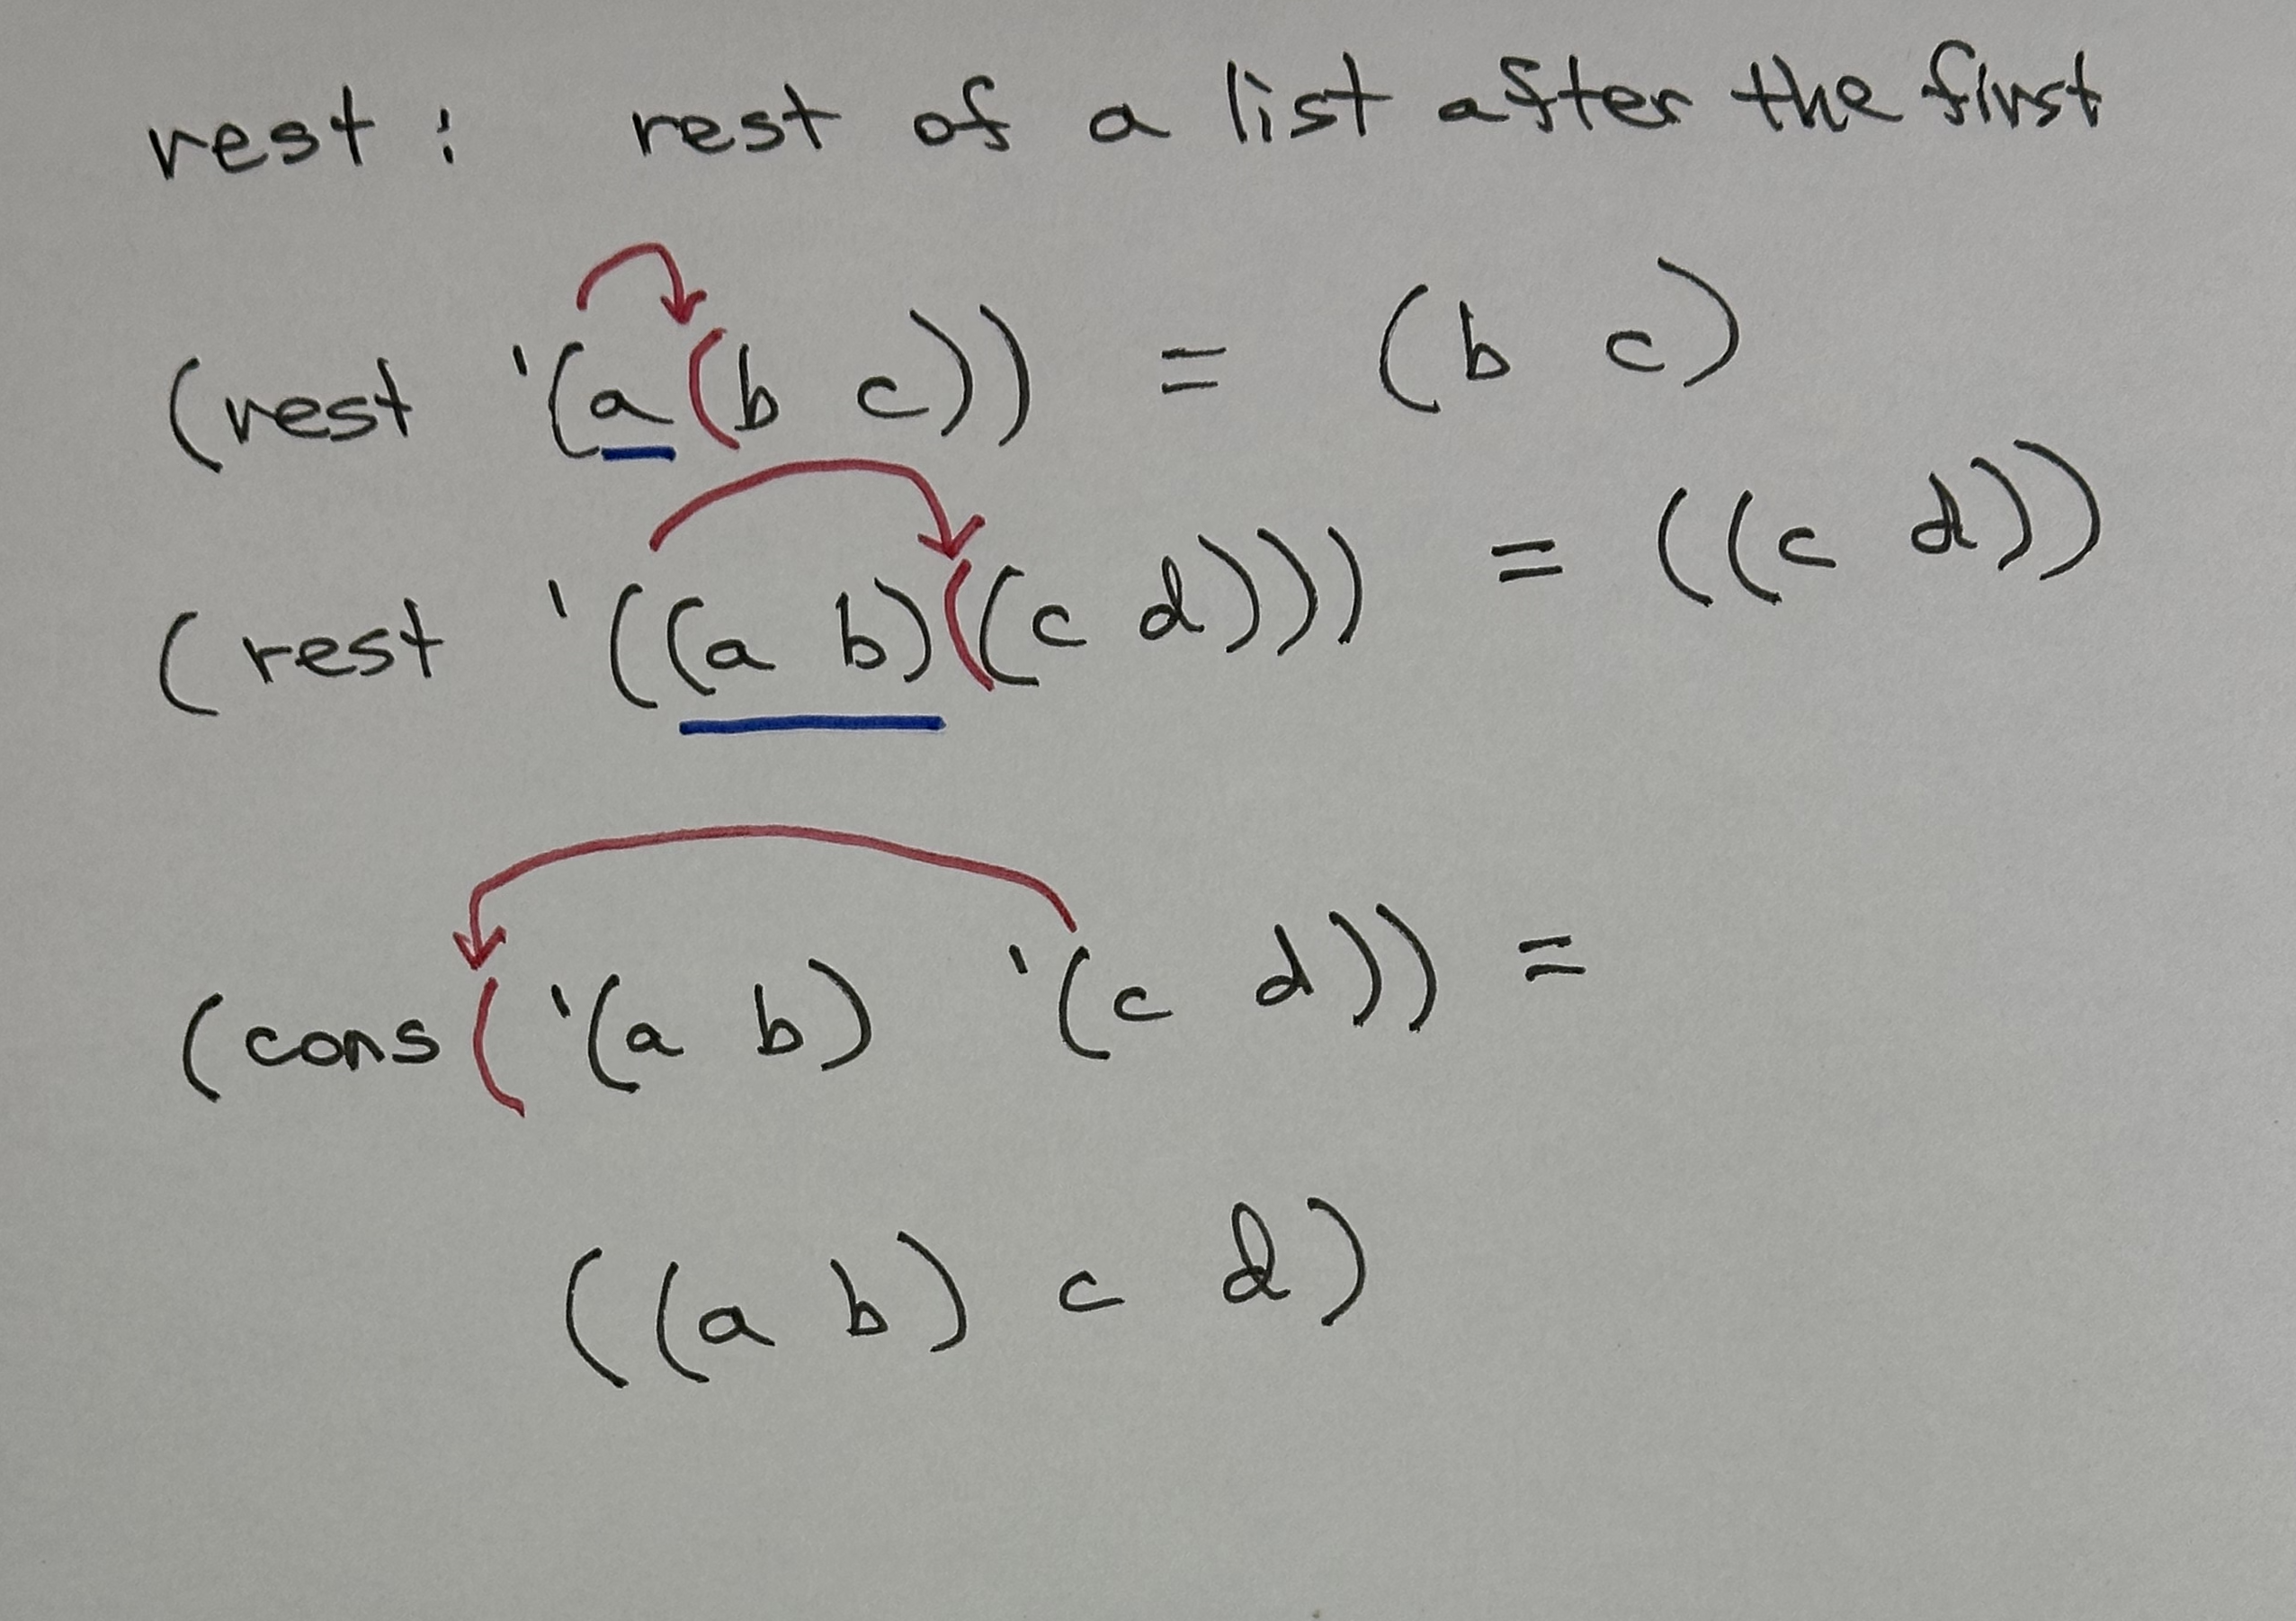 rest : rest of a list after the first
(rest '(a(b c)) = (b c)
(rest '((a b)((c d))) = ((c d))
(cons('(a b) '(c d)) =
((a b) c d)